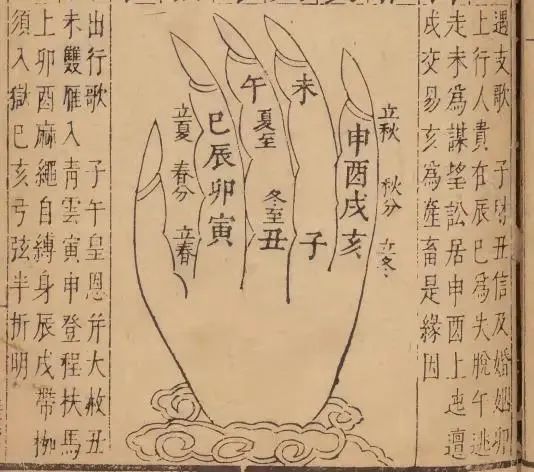 遇支歌　子財丑信及婚姻卯
上行人貴在辰巳爲失脫午逃
走未爲謀望訟居申酉上迍邅
戌交易亥爲產畜是緣因
立秋　秋分　立冬
申酉戌亥
未
子
午
夏至　冬至
丑
巳辰卯寅
立夏　春分　立春
出行歌　子午皇恩并大赦丑
未雙雁入青雲寅申登程扶馬
上卯酉麻繩自縛身辰戌帶枷
須入獄巳亥弓弦半折明